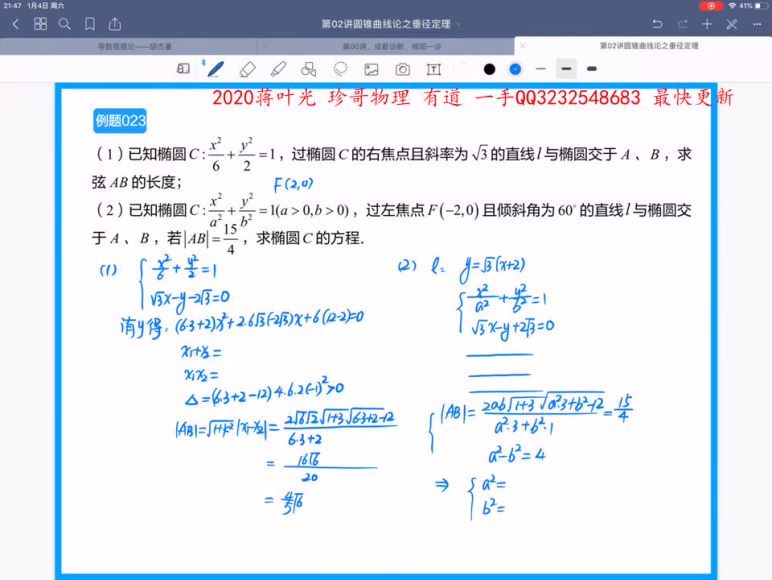 21:47 1月4日 周六
41%
第02讲圆锥曲线论之垂径定理
导数极限论——胡杰著
第00讲、成都诊断、绵阳一诊
第02讲圆锥曲线论之垂径定理
2020蒋叶光 珍哥物理 有道 一手QQ3232548683 最快更新
例题023
（1）已知椭圆 C : x²/6 + y²/2 = 1，过椭圆 C 的右焦点且斜率为 √3 的直线 l 与椭圆交于 A 、B ，求
弦 AB 的长度；
F(2,0)
（2）已知椭圆 C : x²/a² + y²/b² = 1(a > 0, b > 0)，过左焦点 F(−2,0) 且倾斜角为 60° 的直线 l 与椭圆交
于 A 、B ，若 |AB| = 15/4 ，求椭圆 C 的方程.
(1) { x²/6 + y²/2 = 1
√3x-y-2√3=0
消y得: (6·3+2)x²+2·6√3(-2√3)x+6(12-2)=0
x₁+x₂=
x₁x₂=
Δ=(6·3+2-12)·4·6·2·(-1)²>0
|AB|=√(1+k²)|x₁-x₂|= 2√6√2√(1+3)√(6·3+2-12) / (6·3+2)
= 16√6/20
= 4/5√6
(2) l: y=√3(x+2)
{ x²/a² + y²/b² = 1
√3x-y+2√3=0
{ |AB|= 2ab√(1+3)√(a²·3+b²-12) / (a²·3+b²·1) = 15/4
a²-b²=4
⇒ { a²=
b²=